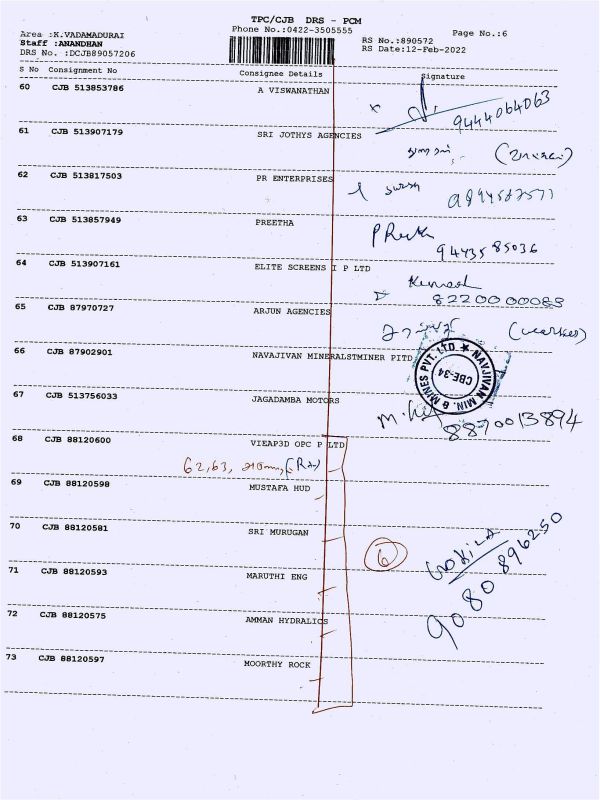 TPC/CJB DRS - PCM
Area :K.VADAMADURAI
Phone No.:0422-3505555
Page No.:6
Staff :ANANDHAN
RS No.:890572
DRS No. :DCJB89057206
RS Date:12-Feb-2022
S No Consignment No Consignee Details Signature
60 CJB 513853786 A VISWANATHAN
9444064063
61 CJB 513907179 SRI JOTHYS AGENCIES
62 CJB 513817503 PR ENTERPRISES
63 CJB 513857949 PREETHA
94435 85036
64 CJB 513907161 ELITE SCREENS I P LTD
Kumesh
8220000088
65 CJB 87970727 ARJUN AGENCIES
66 CJB 87902901 NAVAJIVAN MINERALSTMINER PITD
NAVJIVAN MIN. & MINES PVT. LTD. ★
CBE-34
67 CJB 513756033 JAGADAMBA MOTORS
8870013894
68 CJB 88120600 VIEAP3D OPC P LTD
62,63,
69 CJB 88120598 MUSTAFA HUD
70 CJB 88120581 SRI MURUGAN
6
71 CJB 88120593 MARUTHI ENG
9080 896250
72 CJB 88120575 AMMAN HYDRALICS
73 CJB 88120597 MOORTHY ROCK